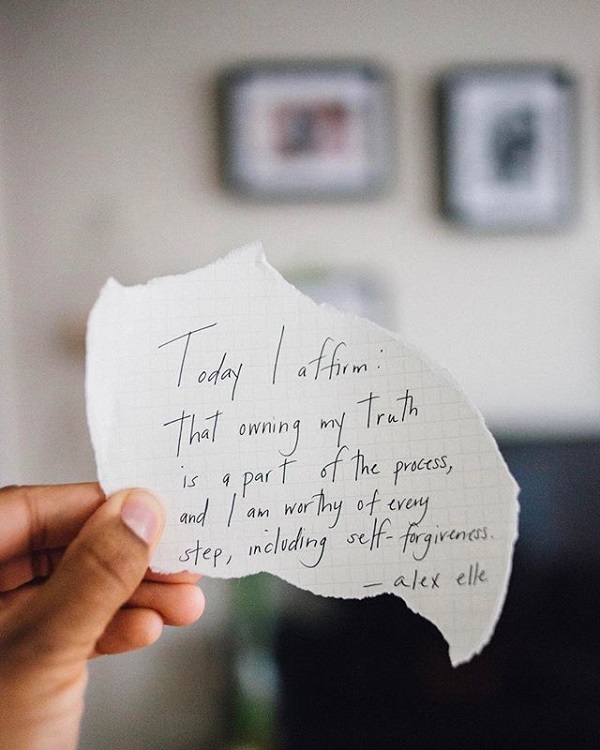 Today I affirm:
that owning my truth
is a part of the process,
and I am worthy of every
step, including self-forgiveness.
— alex elle